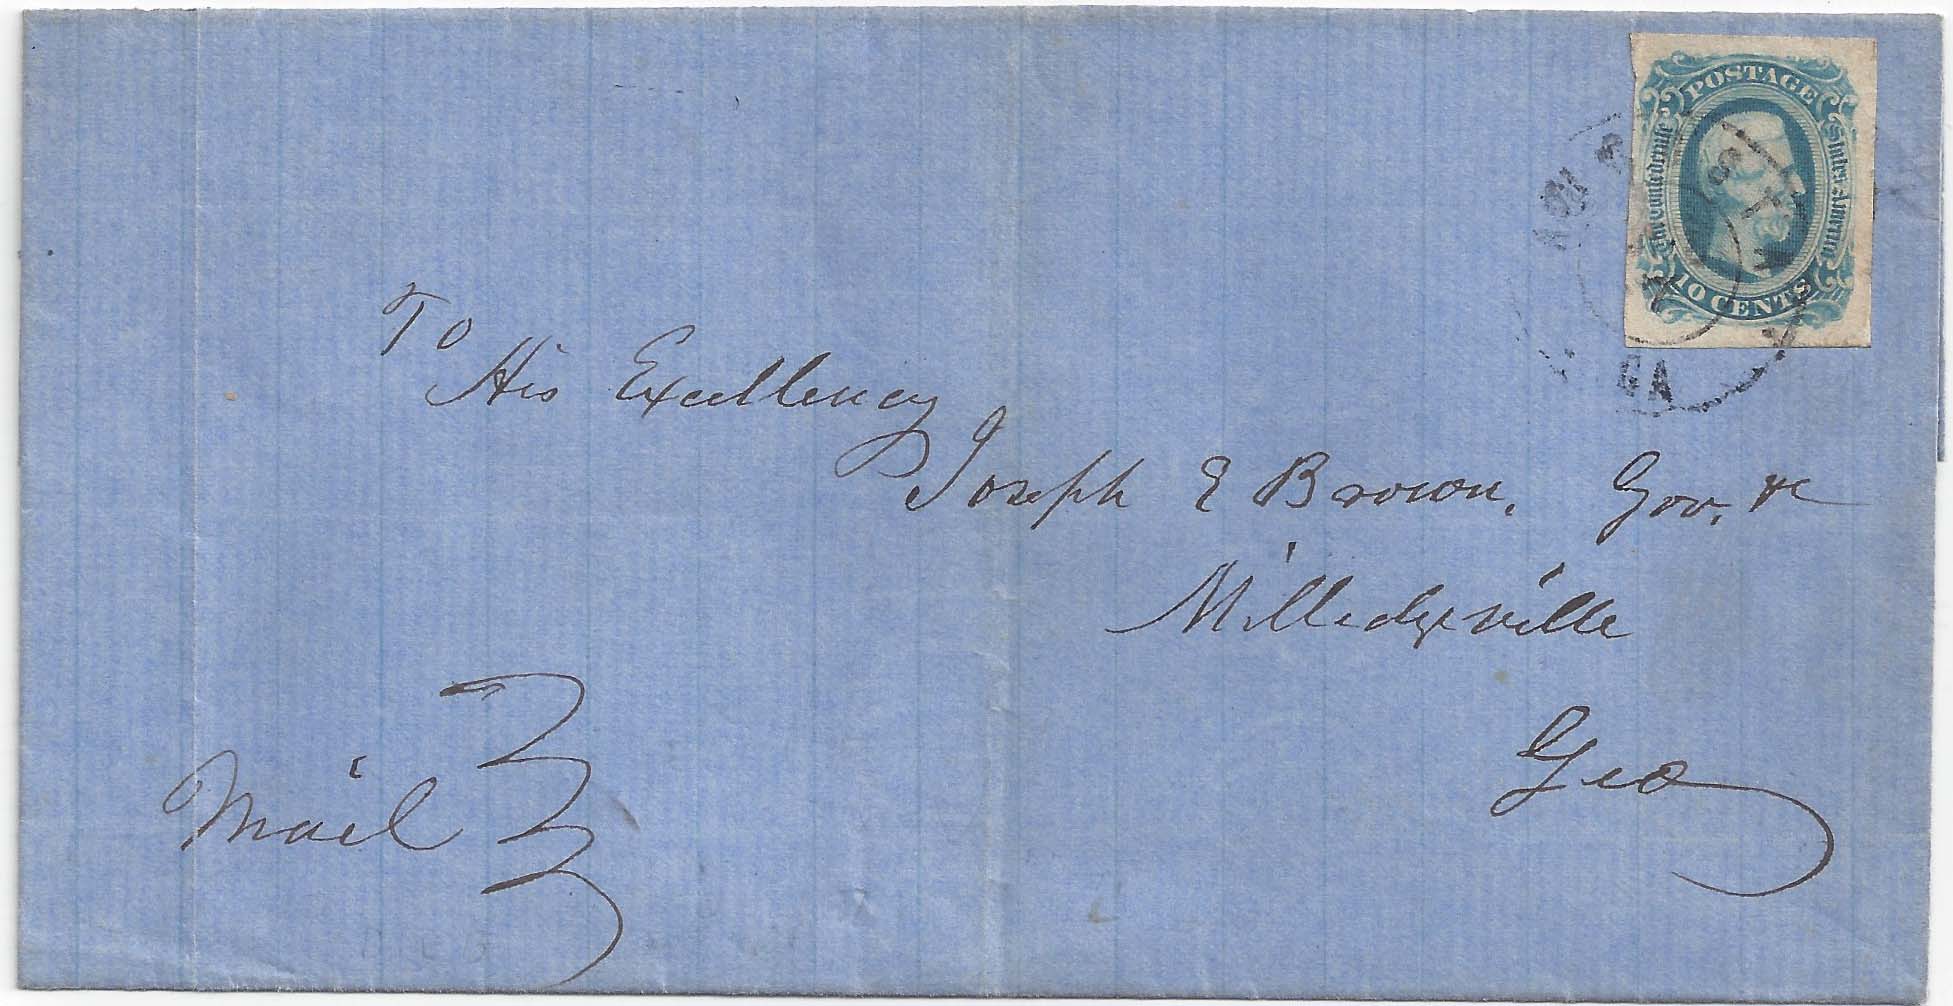 POSTAGE
The Confederate States of America
10 CENTS
GA
To
His Excellency
Joseph E Brown, Gov. &c
Milledgeville
Geo
Mail